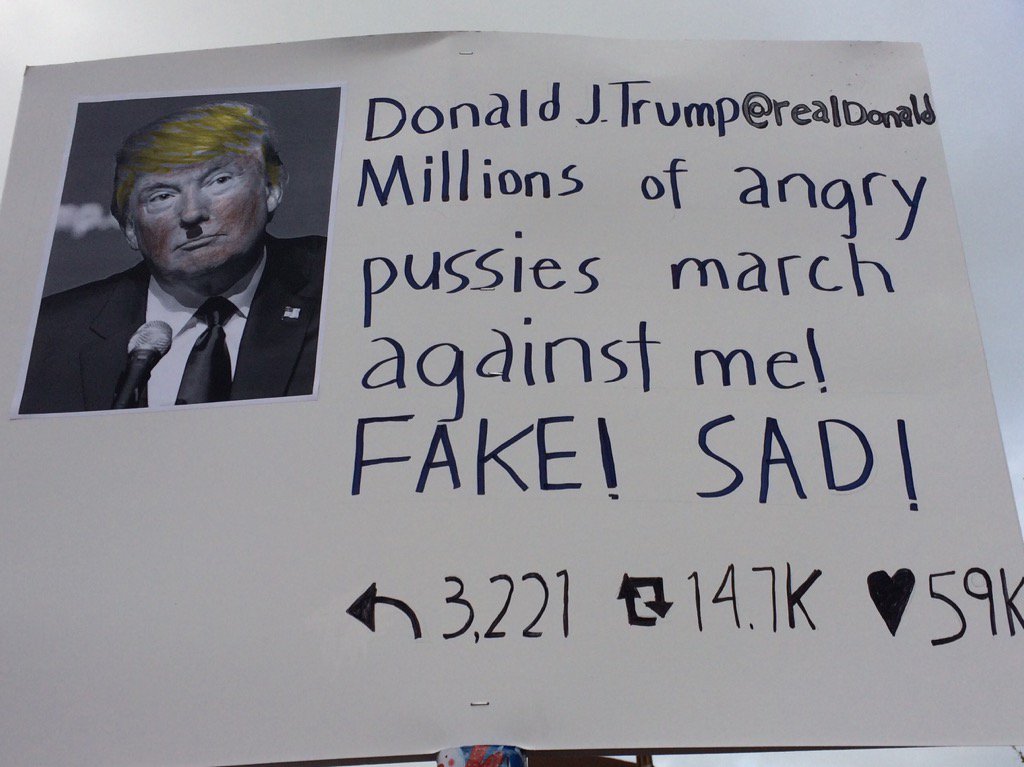 Donald J. Trump@realDonald
Millions of angry
pussies march
against me!
FAKE! SAD!
3,221 14.7K 59K